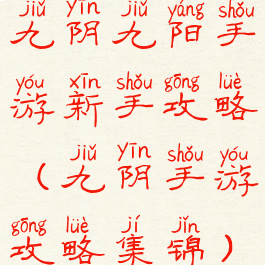 jiǔ yīn jiǔ yáng shǒu
九阴九阳手
yóu xīn shǒu gōng lüè
游新手攻略
jiǔ yīn shǒu yóu
（九阴手游
gōng lüè jí jǐn
攻略集锦）